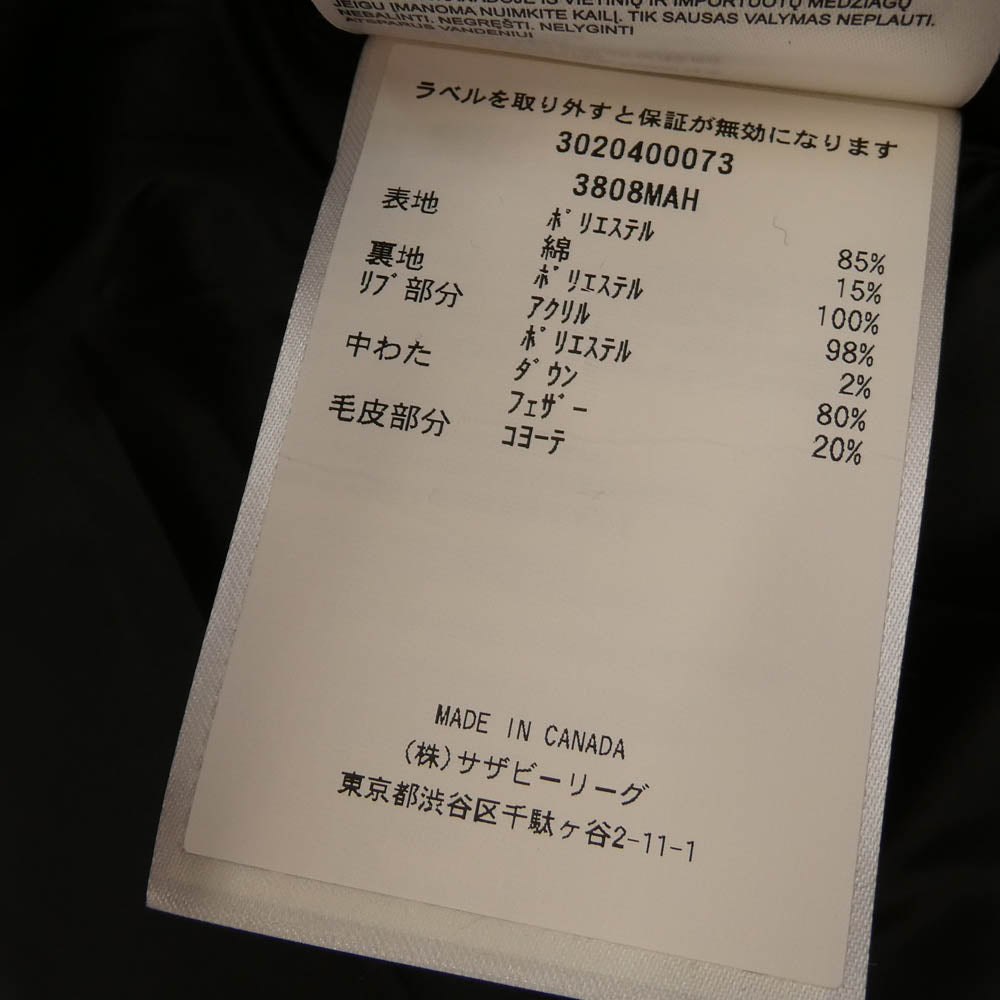 JEIGU ĮMANOMA NUIMKITE KAILĮ. TIK SAUSAS VALYMAS NEPLAUTI.
NEBALINTI. NEGREŠTI. NELYGINTI
ラベルを取り外すと保証が無効になります
3020400073
3808MAH
表地 ポリエステル 85%
綿 15%
裏地 ポリエステル 100%
リブ部分 アクリル 98%
ポリエステル 2%
中わた ダウン 80%
フェザー 20%
毛皮部分 コヨーテ
MADE IN CANADA
(株)サザビーリーグ
東京都渋谷区千駄ヶ谷2-11-1